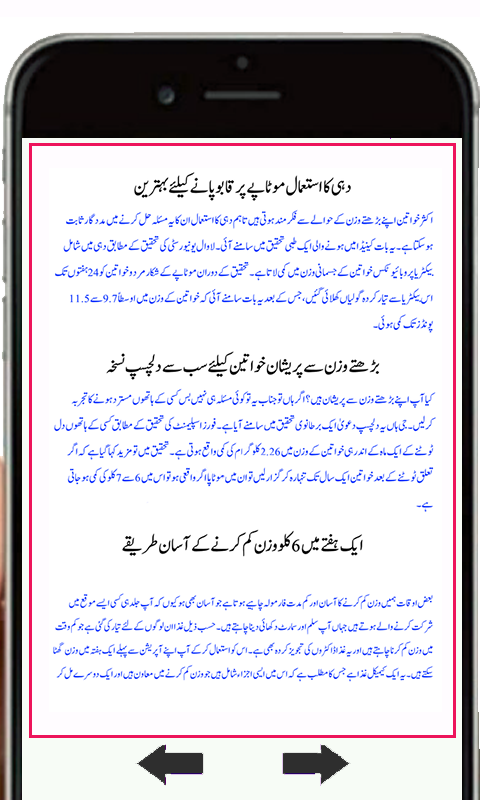 دہی کا استعمال موٹاپے پر قابو پانے کیلئے بہترین
اکثر خواتین اپنے بڑھتے وزن کے حوالے سے فکر مند ہوتی ہیں تاہم دہی کا استعمال ان کا یہ مسئلہ حل کرنے میں مددگار ثابت
ہو سکتا ہے۔ یہ بات کینیڈا میں ہونے والی ایک طبی تحقیق میں سامنے آئی۔ لاوال یونیورسٹی کی تحقیق کے مطابق دہی میں شامل
بیکٹریا پروبائیوٹکس خواتین کے جسمانی وزن میں کمی لاتا ہے۔ تحقیق کے دوران موٹاپے کے شکار مرد و خواتین کو 24 ہفتوں تک
اس بیکٹریا سے تیار کردہ گولیاں کھلائی گئیں، جس کے بعد یہ بات سامنے آئی کہ خواتین کے وزن میں اوسطاً 9.7 سے 11.5
پونڈز تک کمی ہوئی۔
بڑھتے وزن سے پریشان خواتین کیلئے سب سے دلچسپ نسخہ
کیا آپ اپنے بڑھتے وزن سے پریشان ہیں؟ اگر ہاں تو جناب یہ تو کوئی مسئلہ ہی نہیں بس کسی کے ہاتھوں مسترد ہونے کا تجربہ
کرلیں۔ جی ہاں یہ دلچسپ دعویٰ ایک برطانوی تحقیق میں سامنے آیا ہے۔ فورزا سپلیمنٹ کی تحقیق کے مطابق کسی کے ہاتھوں دل
ٹوٹنے کے ایک ماہ کے اندر ہی خواتین کے وزن میں 2.26 کلو گرام کی کمی واقع ہوتی ہے۔ تحقیق میں مزید کہا گیا ہے کہ اگر
تعلق ٹوٹنے کے بعد خواتین ایک سال تک تنہا رہ کر گزار لیں تو ان میں موٹاپا اگر واقعی ہو تو اس میں 6 سے 7 کلو کی کمی ہو جاتی
ہے۔
ایک ہفتے میں 6 کلو وزن کم کرنے کے آسان طریقے
بعض اوقات ہمیں وزن کم کرنے کا آسان اور کم مدت فارمولہ چاہیے ہوتا ہے جو آسان بھی ہو کیوں کہ آپ جلد ہی کسی ایسے موقع میں
شرکت کرنے والے ہوتے ہیں جہاں آپ سلم اور سمارٹ دکھائی دینا چاہتے ہیں۔ حسب ذیل غذا ان لوگوں کے لئے تیار کی گئی ہے جو کم وقت
میں وزن کم کرنا چاہتے ہیں اور یہ غذا ڈاکٹروں کی تجویز کردہ بھی ہے۔ اس کو استعمال کر کے آپ اپنے آپریشن سے پہلے ایک ہفتہ میں وزن گھٹا
سکتے ہیں۔ یہ ایک کیمیکل غذا ہے جس کا مطلب ہے کہ اس میں ایسی اجزاء شامل ہیں جو وزن کم کرنے میں معاون ہیں اور ایک دوسرے مل کر